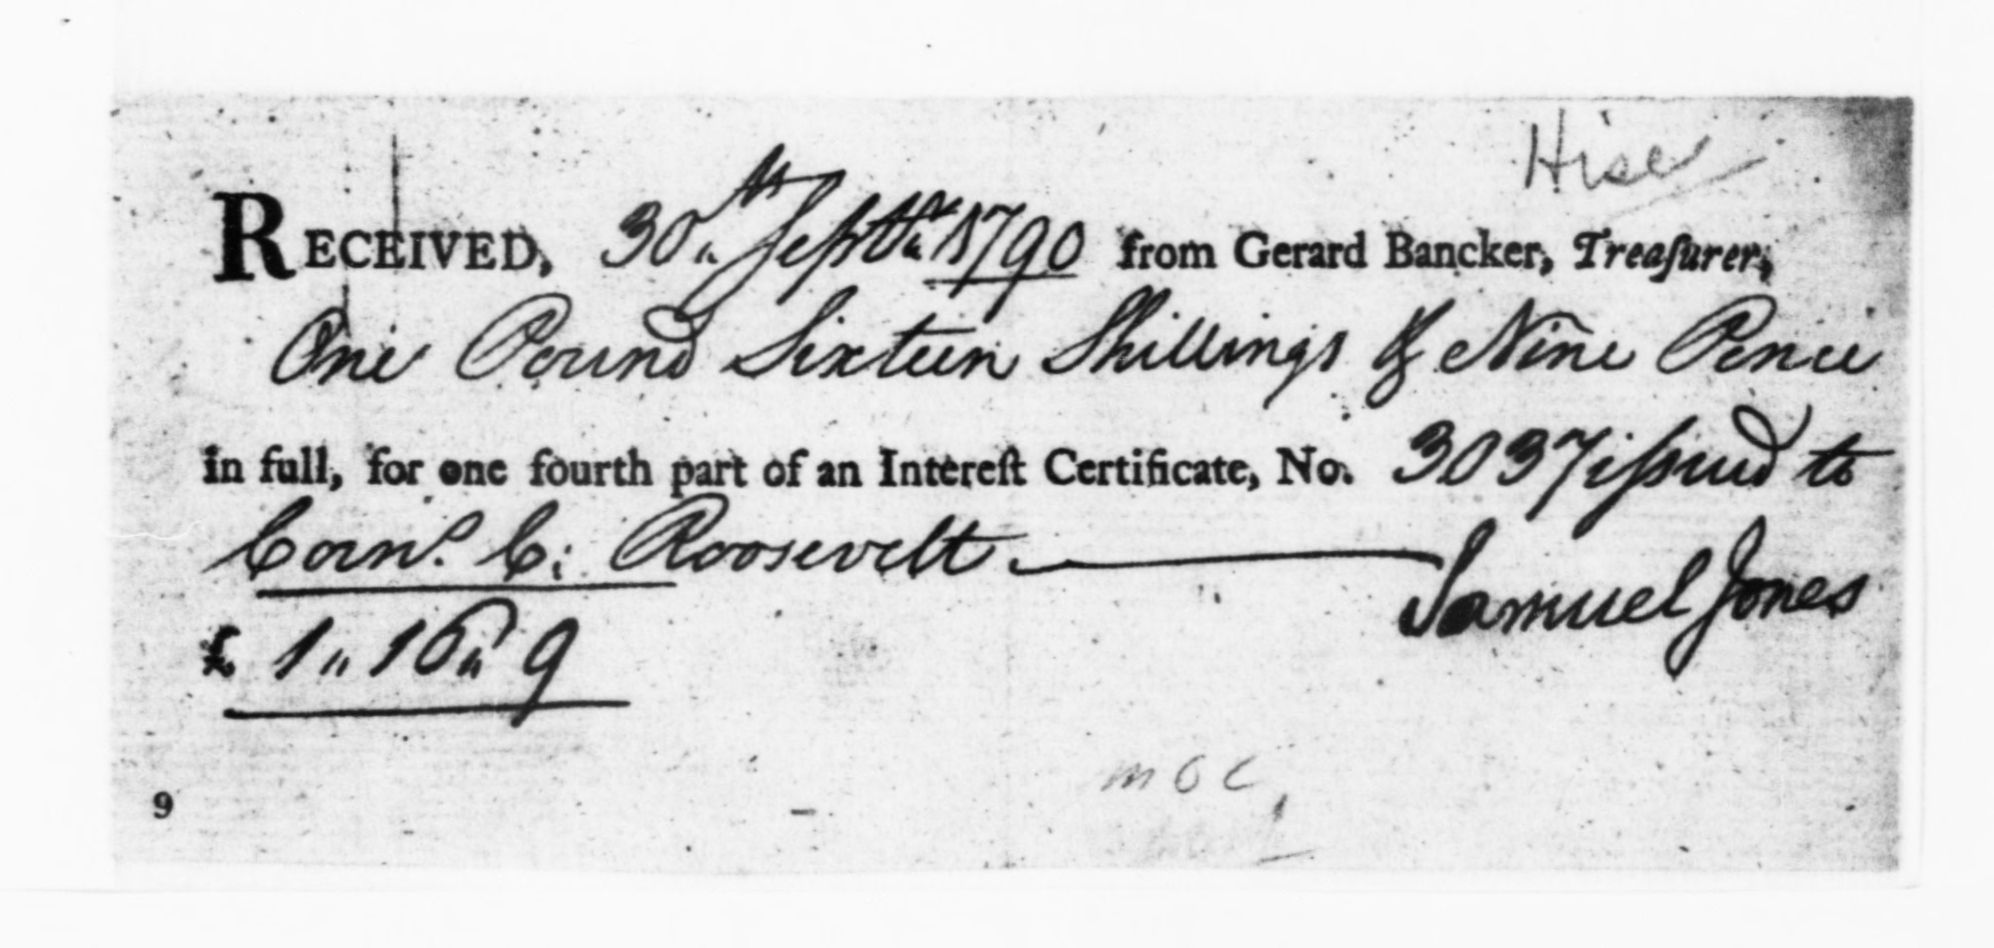 Hise
RECEIVED, 30„th Septr„ 1790 from Gerard Bancker, Treaſurer,
One Pound Sixteen Shillings & Nine Pence
in full, for one fourth part of an Intereſt Certificate, No. 3037 iſsued to
Corns. C: Roosevelt
Samuel Jones
£ 1„ 16„ 9
moc
9